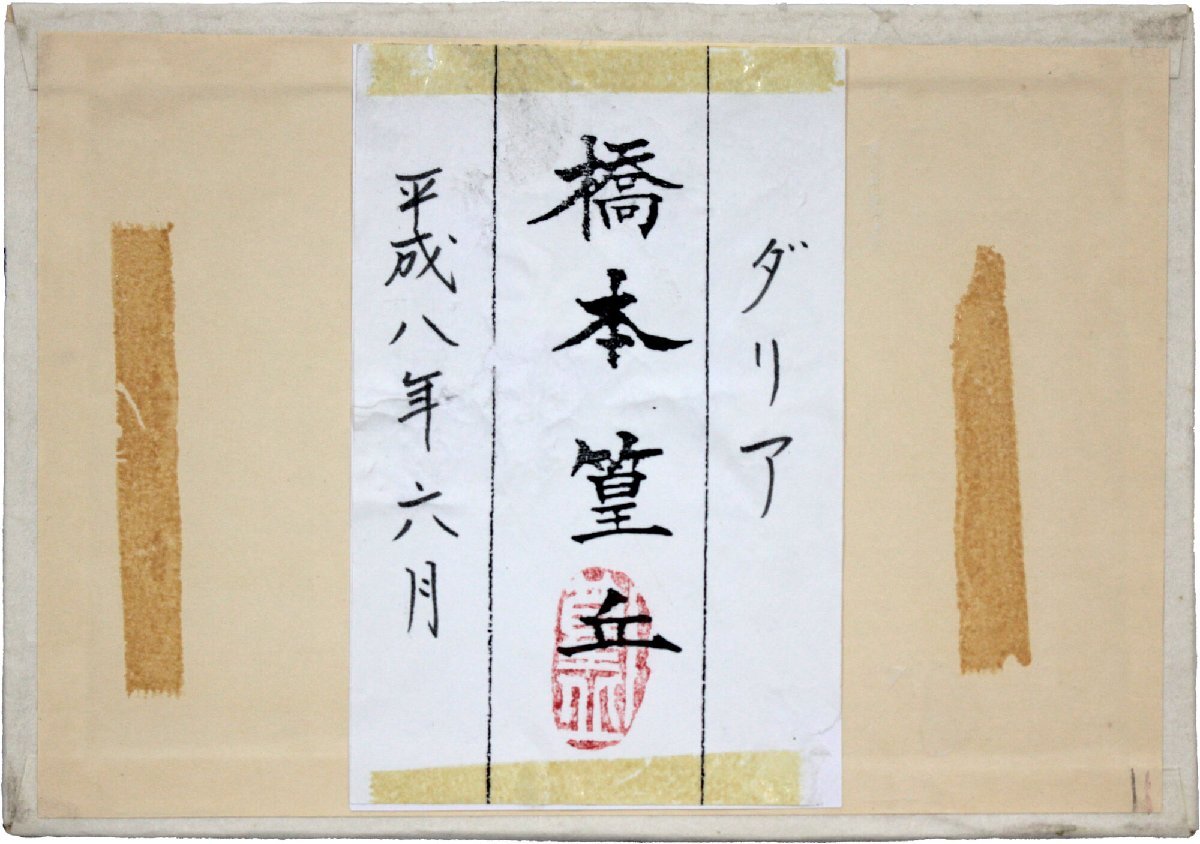 ダリア
橋本篁丘
平成八年六月